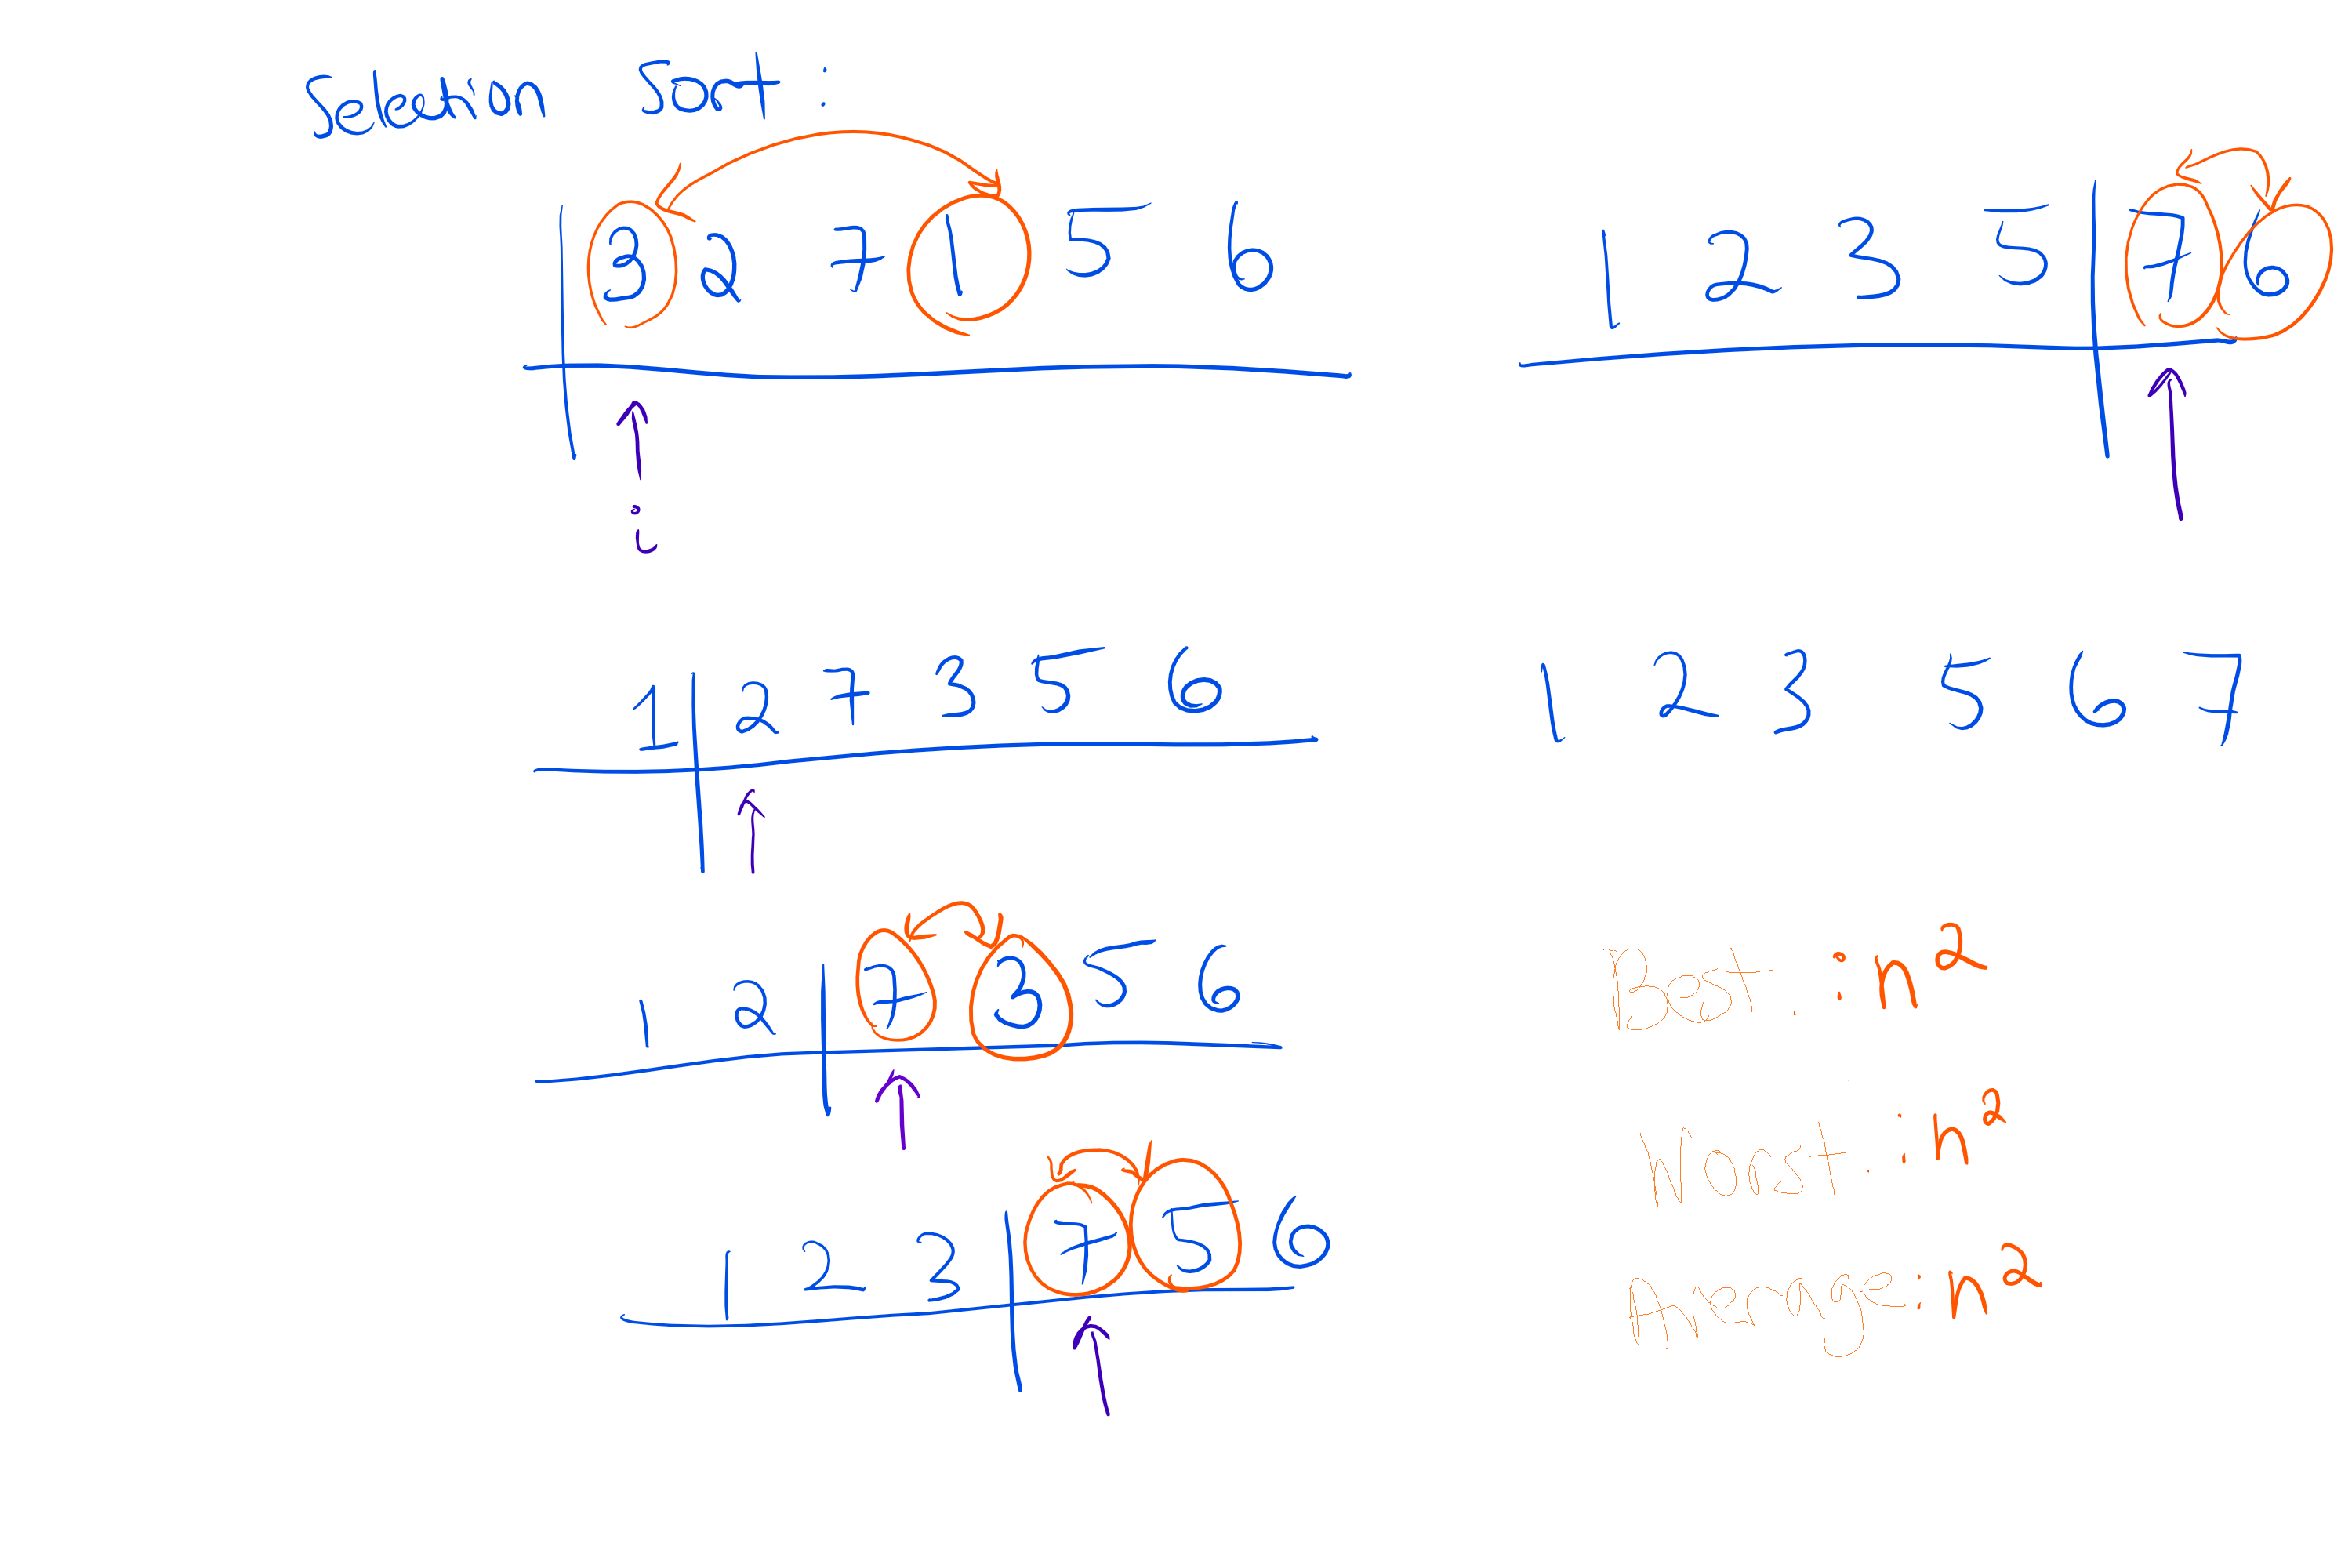 Selection Sort :
3 2 7 1 5 6
i
1 2 7 3 5 6
1 2 7 3 5 6
1 2 3 7 5 6
1 2 3 5 7 6
1 2 3 5 6 7
Best : n²
Worst : n²
Average : n²